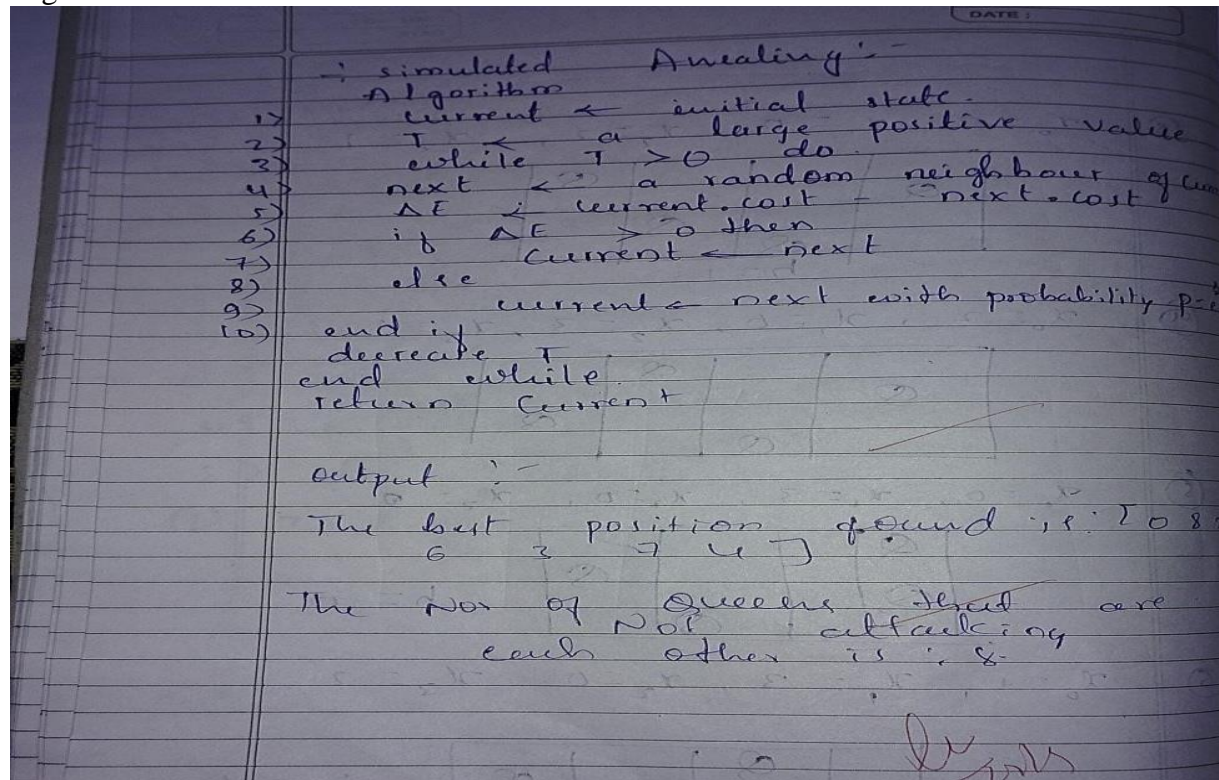 DATE :
-: simulated Anealing :-
Algorithm
1) current ← initial state.
2) T ← a large positive value
3) while T > 0 do
4) next ← a random neighbour of
5) ΔE ← current.cost - next.cost
6) if ΔE > 0 then
7) current ← next
8) else
9) current ← next with probability p=
10) end if
decreate T
end while
return current
output :-
The best position found is: [0 8
6 3 7 4]
The Nos of Queens that are
Not attacking
each other is : 8.